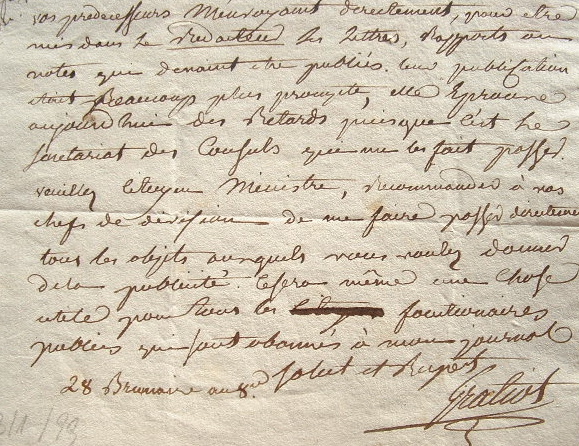 vos predecesseurs M'envoyaient directement, pour etre
mis dans le Redacteur les lettres, Rapports ou
notes qui devaient etre publiés. leur publication
était Beaucoup plus prompte, elle Eprouve
aujourd'hui des Retards puisque c'est le
secretariat des Consuls qui me les fait passer.
veuillez Citoyen Ministre, Recommander à vos
chefs de division de me faire passer directement
tous les objets auxquels vous voulez donner
de la publicité. Ce sera même une Chose
utile pour tous les fonctionaires
publics qui sont abonnés à mon journal
Salut et Respect
28 Brumaire an 8.